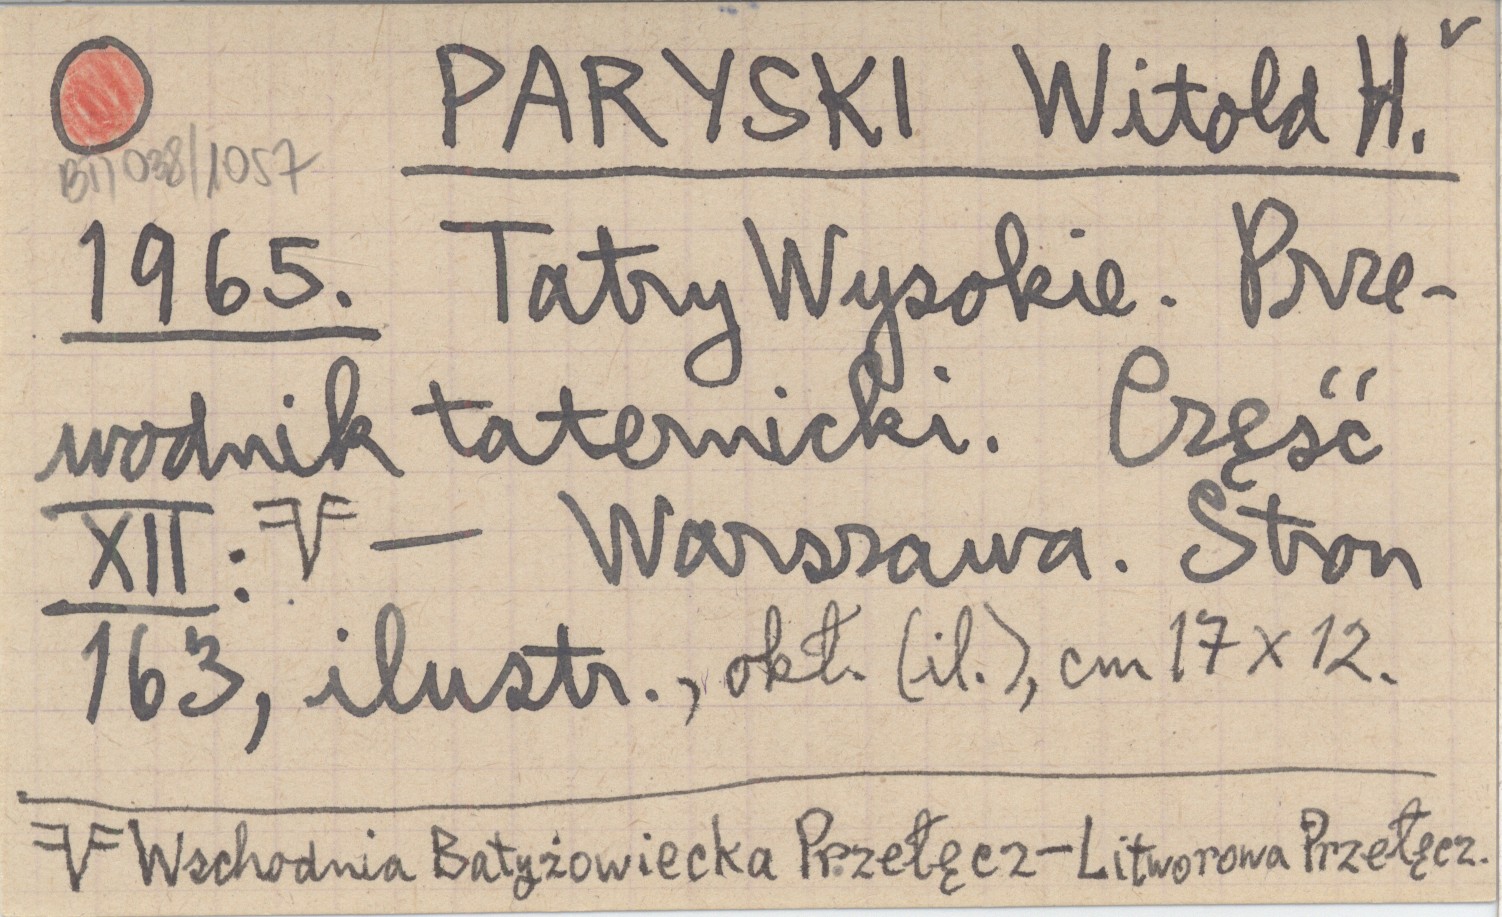 PARYSKI Witold H.
BП 038/1057
1965. Tatry Wysokie. Prze-
wodnik taternicki. Część
XII: — Warszawa. Stron
163, ilustr., okł. (il.), cm 17 x 12.
Wschodnia Batyżowiecka Przełęcz-Litworowa Przełęcz.